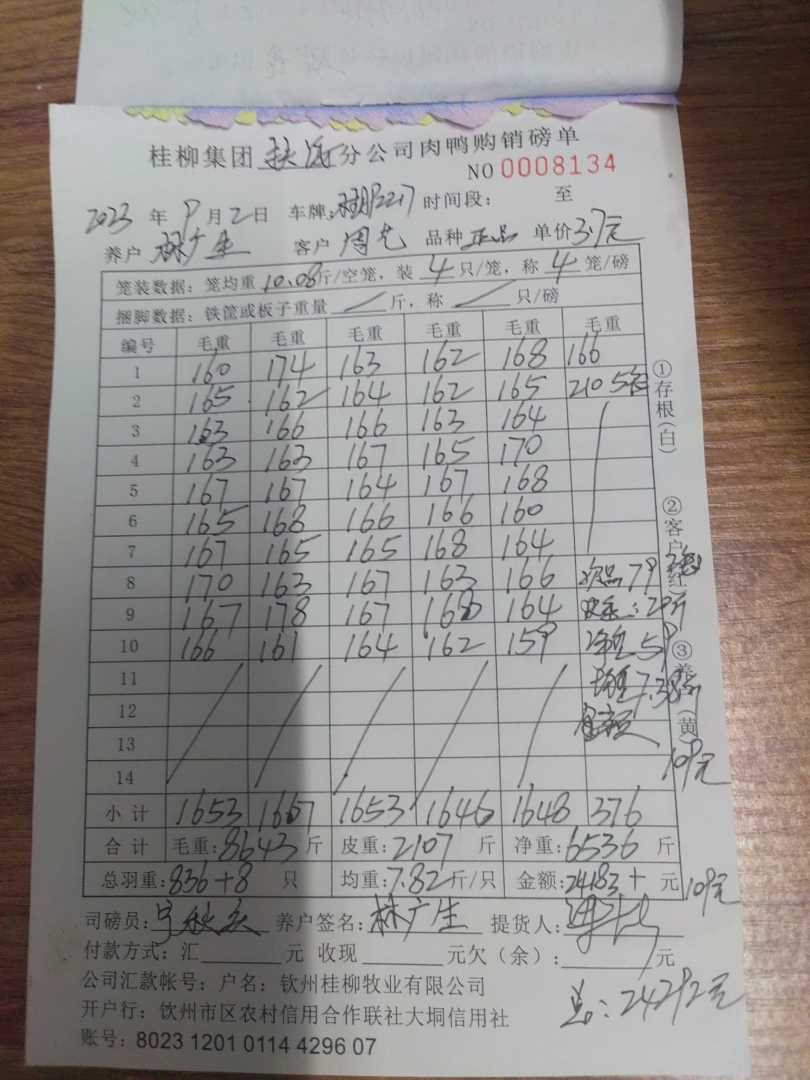 桂柳集团 分公司肉鸭购销磅单
NO 0008134
2023 年 9 月 2 日 车牌: 时间段: 至
养户 林广生 客户 周 品种 正品 单价 3.7元
笼装数据: 笼均重 10.08斤/空笼, 装 4 只/笼, 称 4 笼/磅
捆脚数据: 铁筐或板子重量 / 斤, 称 / 只/磅
编号 毛重 毛重 毛重 毛重 毛重 毛重
1 160 174 163 162 168 166
2 165 162 164 162 165 210 5笼
3 163 166 166 163 164
4 163 163 167 165 170
5 167 167 164 167 168
6 165 168 166 166 160
7 167 165 165 168 164
8 170 163 167 163 166 次品 79
9 167 178 167 164 皮重: 20斤
10 166 161 164 162 159 净重 59
11 均重 7.38斤
12 金额
13 109元
14
小计 1653 1667 1653 1646 1648 376
合计 毛重: 8643 斤 皮重: 2107 斤 净重: 6536 斤
总羽重: 836+8 只 均重: 7.82 斤/只 金额: 24183 + 元 109元
司磅员: 养户签名: 林广生 提货人:
付款方式: 汇 元 收现 元欠(余): 元
公司汇款帐号: 户名: 钦州桂柳牧业有限公司
总: 24292元
开户行: 饮州市区农村信用合作联社大垌信用社
账号: 8023 1201 0114 4296 07
①存根(白)
②客户(红)
③养户(黄)